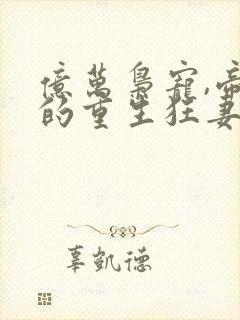 億萬梟寵,帝
的重生狂妻
辜凱德